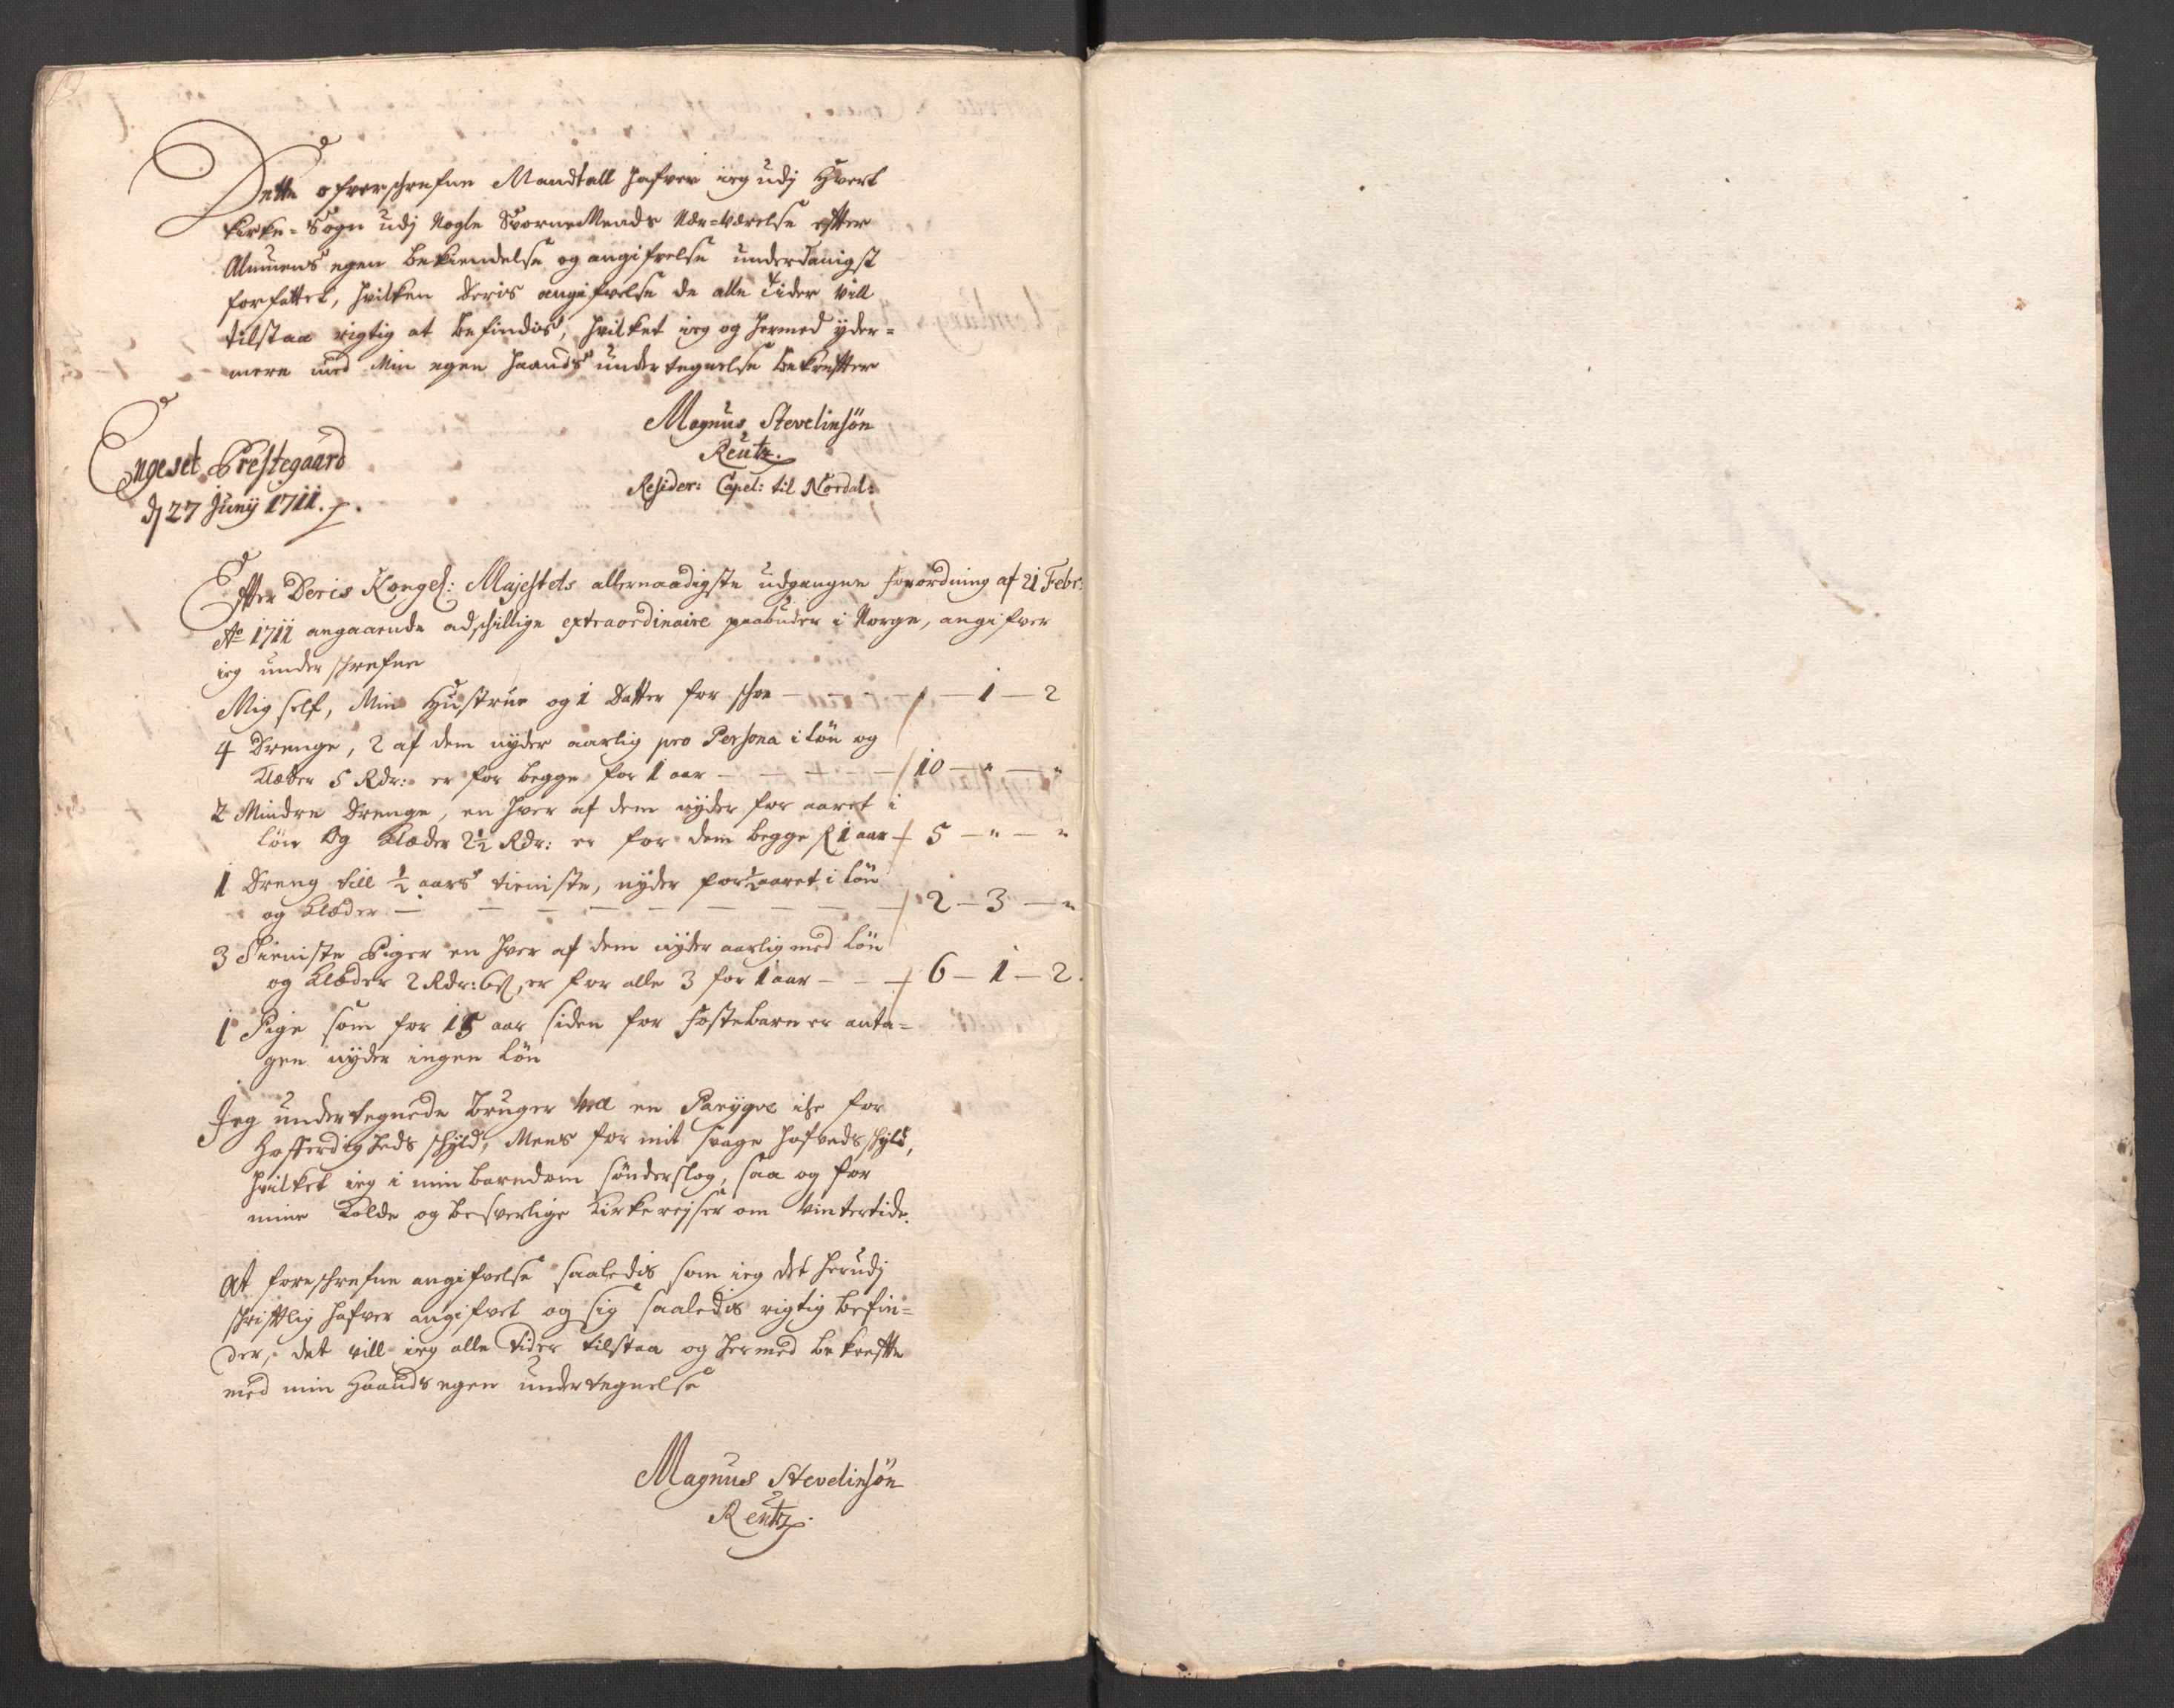 Dette ofverschrefne Mandtall hafver ieg udj Hvert
Kirke-Sogn udj Nogle SvorneMends Nær-Værelse effter
Almuens egen bekiendelse og angifvelse underdanigst
forfattet, hvilken deris angifvelse de alle tider vill
tilstaa rigtig at befindis, hvilket ieg og hermed yder=
mere med Min egen Haands undertegnelse bekreffter
Magnus Stevelinsön
Reutz.
Resider: Capel: til Nordal:
Engeset Prestegaard
dj 27 Junij 1711.
Effter Deris Kongel: Majestets allernaadigste udgangne forordning af 21 Febr:
Ao 1711 angaaende adschillige extraordinaire paabuder i Norge, angifver
ieg underschrefne
Mig self, Min Hustrue og 1 Datter for schoe — — 1 — 2
4 Drenge, 2 af dem nyder aarlig pro Persona i Løn og
Klæder 5 Rdr: er for begge for 1 aar — — — 10 — " — "
2 Mindre Drenge, en hver af dem nyder for aaret i
Løn og Klæder 2½ Rdr: er for dem begge p 1 aar — 5 — " — "
1 Dreng till ½ aars tieniste, nyder for ½ aaret i Løn
og Klæder — — — — — — — — 2 — 3 — "
3 Tieniste Piger en hver af dem nyder aarlig med Løn
og Klæder 2 Rdr: 6ß, er for alle 3 for 1 aar — — 6 — 1 — 2.
1 Pige som for 15 aar siden for fosterbarn er anta=
gen nyder ingen Løn
Jeg undertegnede Bruger vel en Paryqve iche for
Hofferdigheds schyld, Mens for mit svage hofveds schyld,
hvilket ieg i min barndom sønderslog, saa og for
mine Kolde og besverlige Kirkereyser om Vintertide.
At foreschrefne angifvelse saaledis som ieg det herudj
schrifftlig hafver angifvet og sig saaledis rigtig befin=
der, det vill ieg alle tider tilstaa og hermed bekreffte
med min Haands egen undertegnelse
Magnus Stevelinsön
Reutz.